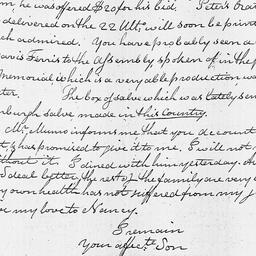 m, he was offered $20 for his bid. Peters orat
delivered on the 22 Ult. will soon be print
ch admired. You have probably seen a
avis Ferris to the Assembly spoken of in the p
Memorial which is a very able production w
ter. The box of salve which was lately sen
nburgh salve made in this Country.
Mr. Munro informs me that you decount
t, & has promised to give it to me, I will not
without it. I dined with him yesterday. An
d deal better, the rest of the family are very
y own health has not suffered from my j
ve my love to Nancy.
I remain
Your affecte. Son